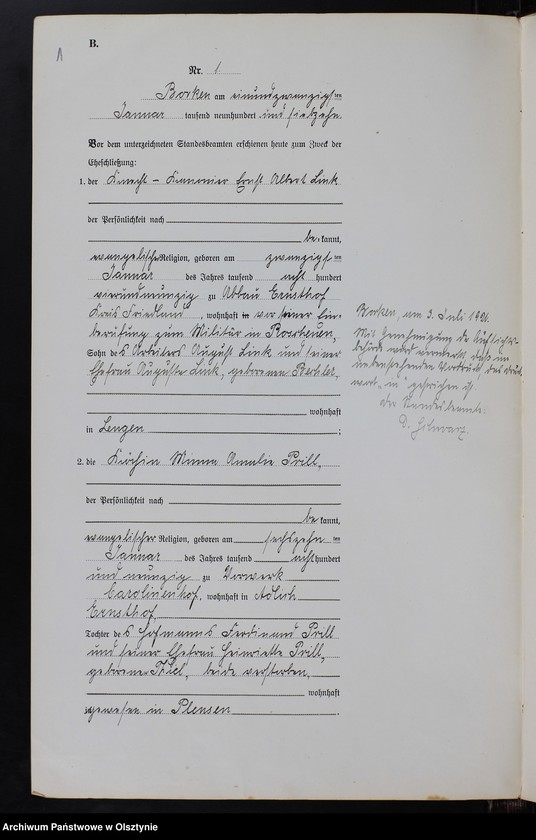 B.
1
Nr. 1
Borken am einundzwanzigsten
Januar tausend neunhundert und siebzehn.
Vor dem unterzeichneten Standesbeamten erschienen heute zum Zweck der
Eheschließung:
1. der Knecht – Kanonier Ernst Albert Link
der Persönlichkeit nach
bekannt,
evangelischer Religion, geboren am zwanzigsten
Januar des Jahres tausend acht hundert
vierundneunzig zu Abbau Ernsthof
Kreis Friedland, wohnhaft in vor seiner Ein-
berufung zum Militär in
Sohn des Arbeiters August Link und seiner
Ehefrau Auguste Link, geborenen
wohnhaft
in Lengen ;
2. die Köchin Minna Amalie Prill,
der Persönlichkeit nach
bekannt,
evangelischer Religion, geboren am sechszehnten
Januar des Jahres tausend achthundert
und neunzig zu Vorwerk
Carolinenhof, wohnhaft in Adlich
Ernsthof,
Tochter des Hofmanns Ferdinand Prill
und seiner Ehefrau Henriette Prill,
geborenen Thiel, beide verstorben,
wohnhaft
gewesen in Plensen .
Borken, am 3. Juli 1926.
Mit Genehmigung der Aufsichts-
behörde wird vermerkt, daß im
nebenstehenden Vordruck das Druck-
wort „in" gestrichen ist.
Der Standesbeamte.
Archiwum Państwowe w Olsztynie